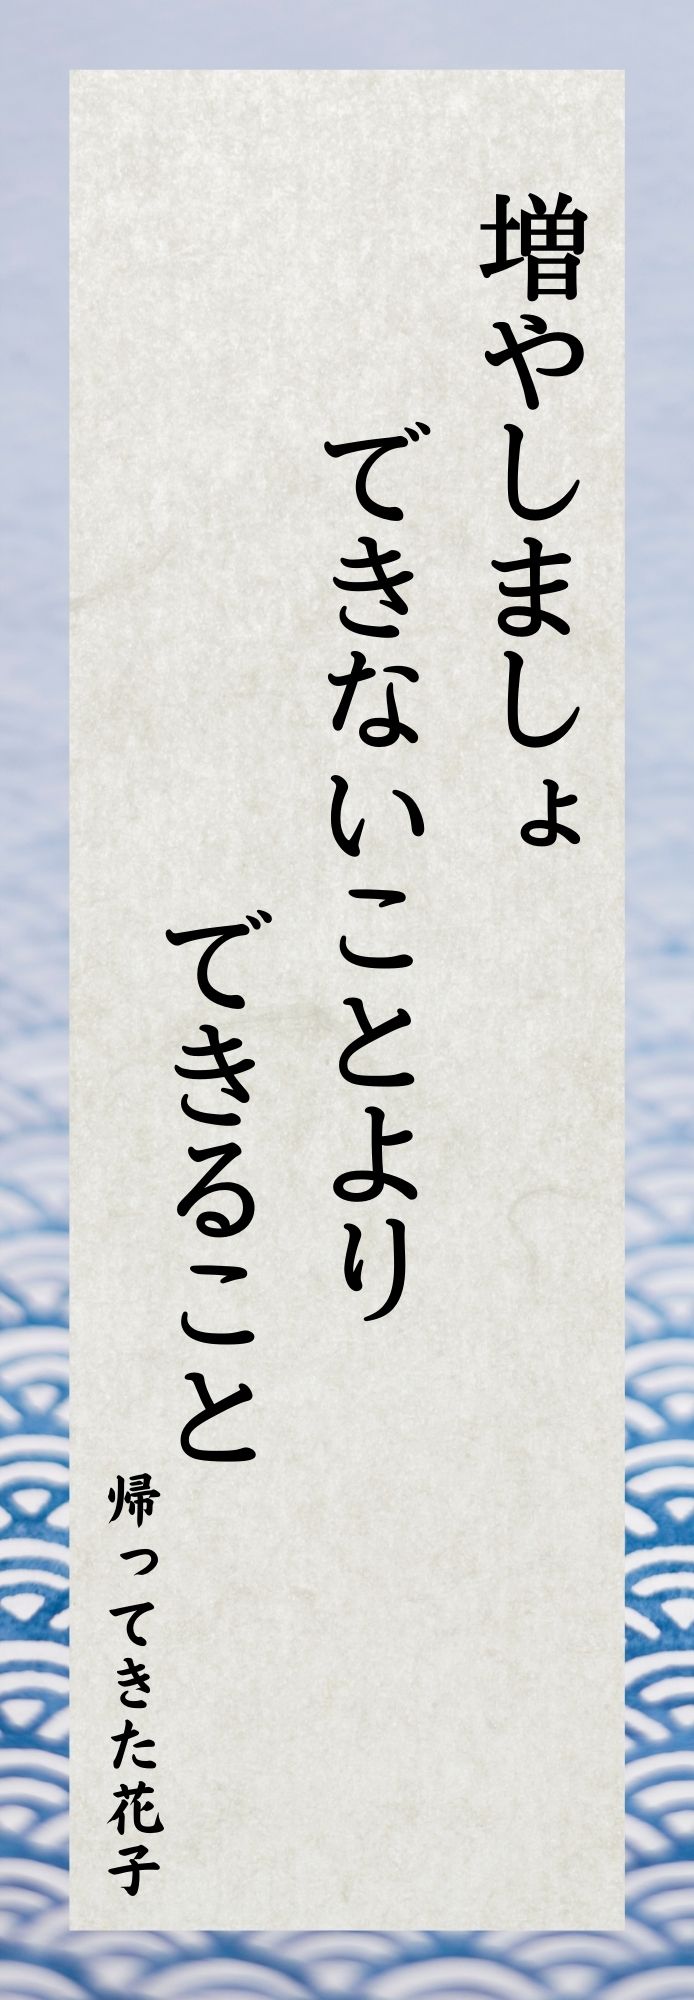 増やしましょ
できないことより
できること
帰ってきた花子